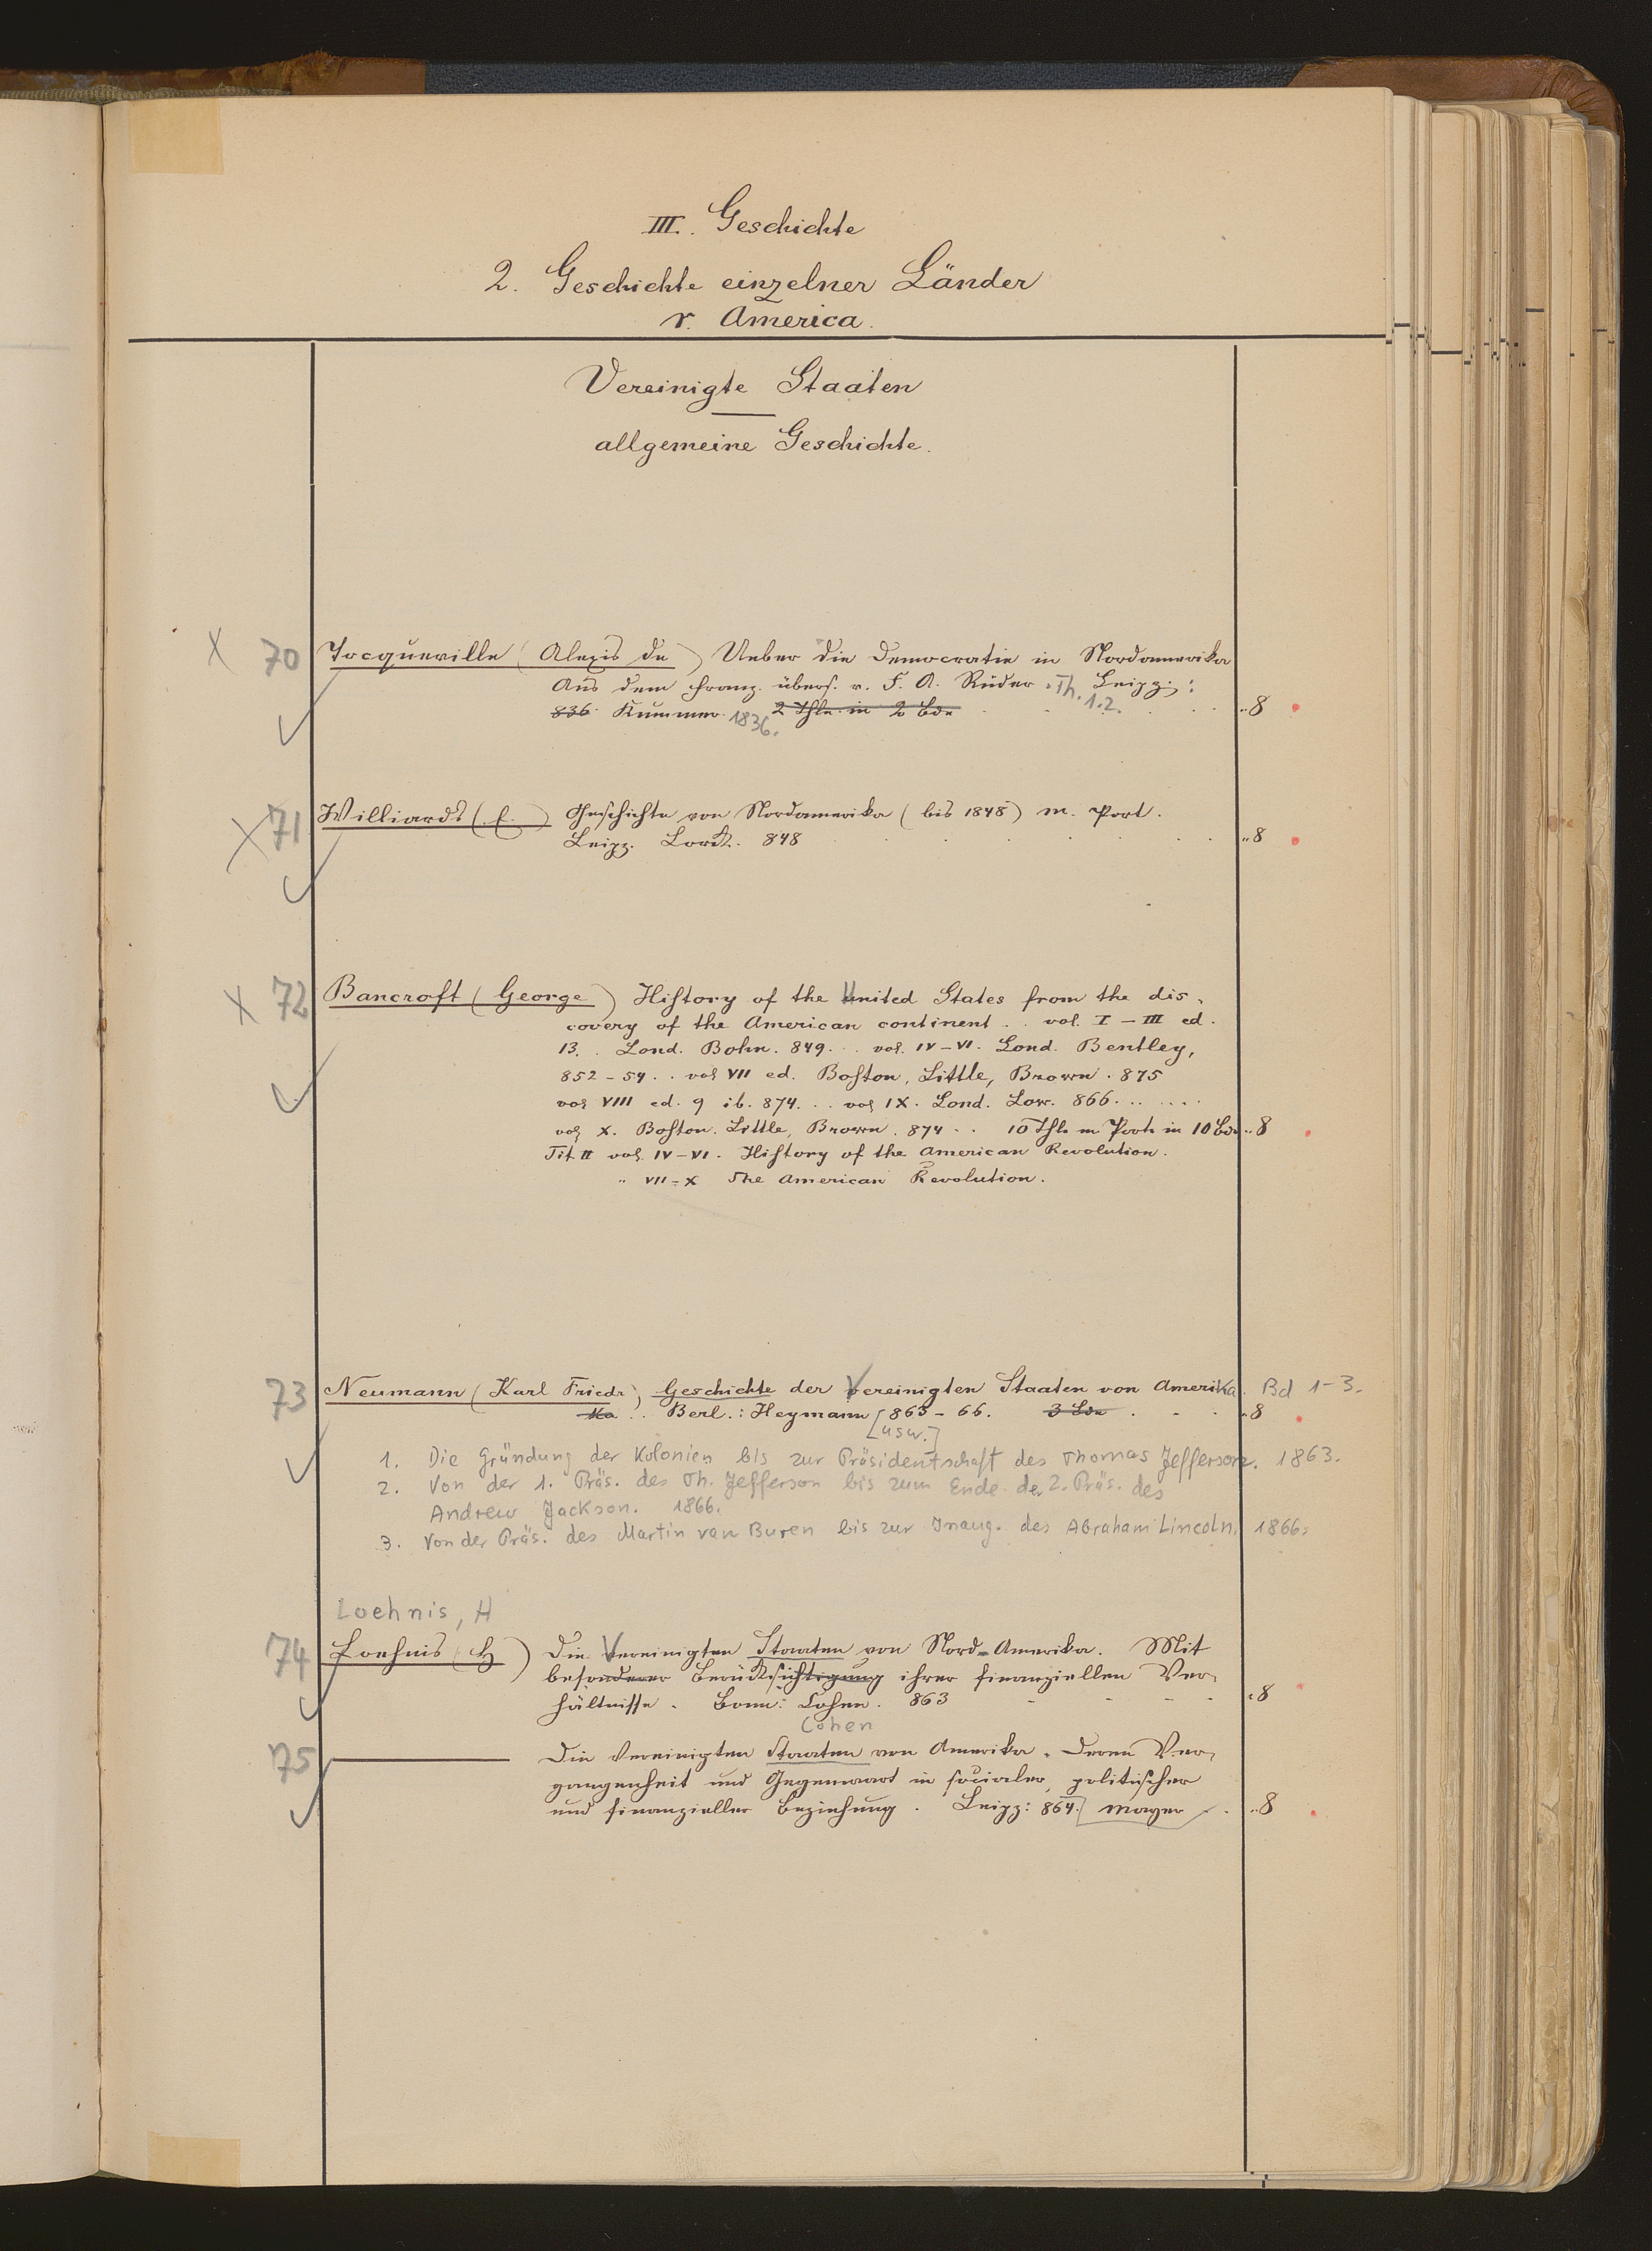 III. Geschichte
2. Geschichte einzelner Länder
r. America.
Vereinigte Staaten
allgemeine Geschichte.
X 70 Tocqueville (Alexis de) Ueber die Democratie in Nordamerika
Aus dem Franz. übers. v. F. A. Rüder. Th. 1.2. Leipz.:
836. Kummer. 1836. 2 Thle. in 2 Bde ..8
X 71 Williards (E.) Geschichte von Nordamerika (bis 1848) m. Port.
Leipz. Lorck. 848 ..8
X 72 Bancroft (George) History of the United States from the dis-
covery of the American continent .. vol. I – III ed.
13. . Lond. Bohn. 849. .. vol. IV–VI. Lond. Bentley,
852 – 54. . vol VII ed. Boston, Little, Brown. 875
vol VIII ed. 9 ib. 874. .. vol IX. Lond. Low. 866. .. ....
vol X. Boston. Little, Brown. 874 .. 10 Thle m Portr in 10 Bde ..8
Tit II vol. IV–VI. History of the American Revolution.
" VII–X The American Revolution.
73 Neumann (Karl Friedr.) Geschichte der Vereinigten Staaten von Amerika. Bd 1–3.
ka .. Berl.: Heymann 863 – 66. 3 Bde ..8
[usw.]
1. Die Gründung der Kolonien bis zur Präsidentschaft des Thomas Jefferson. 1863.
2. Von der 1. Präs. des Th. Jefferson bis zum Ende der 2. Präs. des
Andrew Jackson. 1866.
3. Von der Präs. des Martin van Buren bis zur Inaug. des Abraham Lincoln. 1866.
Loehnis, H
74 Loehnis (H) Die Vereinigten Staaten von Nord-Amerika. Mit
besonderer Berücksichtigung ihrer finanziellen Ver-
hältnisse. Bonn: Cohen. 863 ..8
Cohen
75 Die Vereinigten Staaten von Amerika. Deren Ver-
gangenheit und Gegenwart in socialer, politischer
und finanzieller Beziehung. Leipz: 864. Mayer ..8